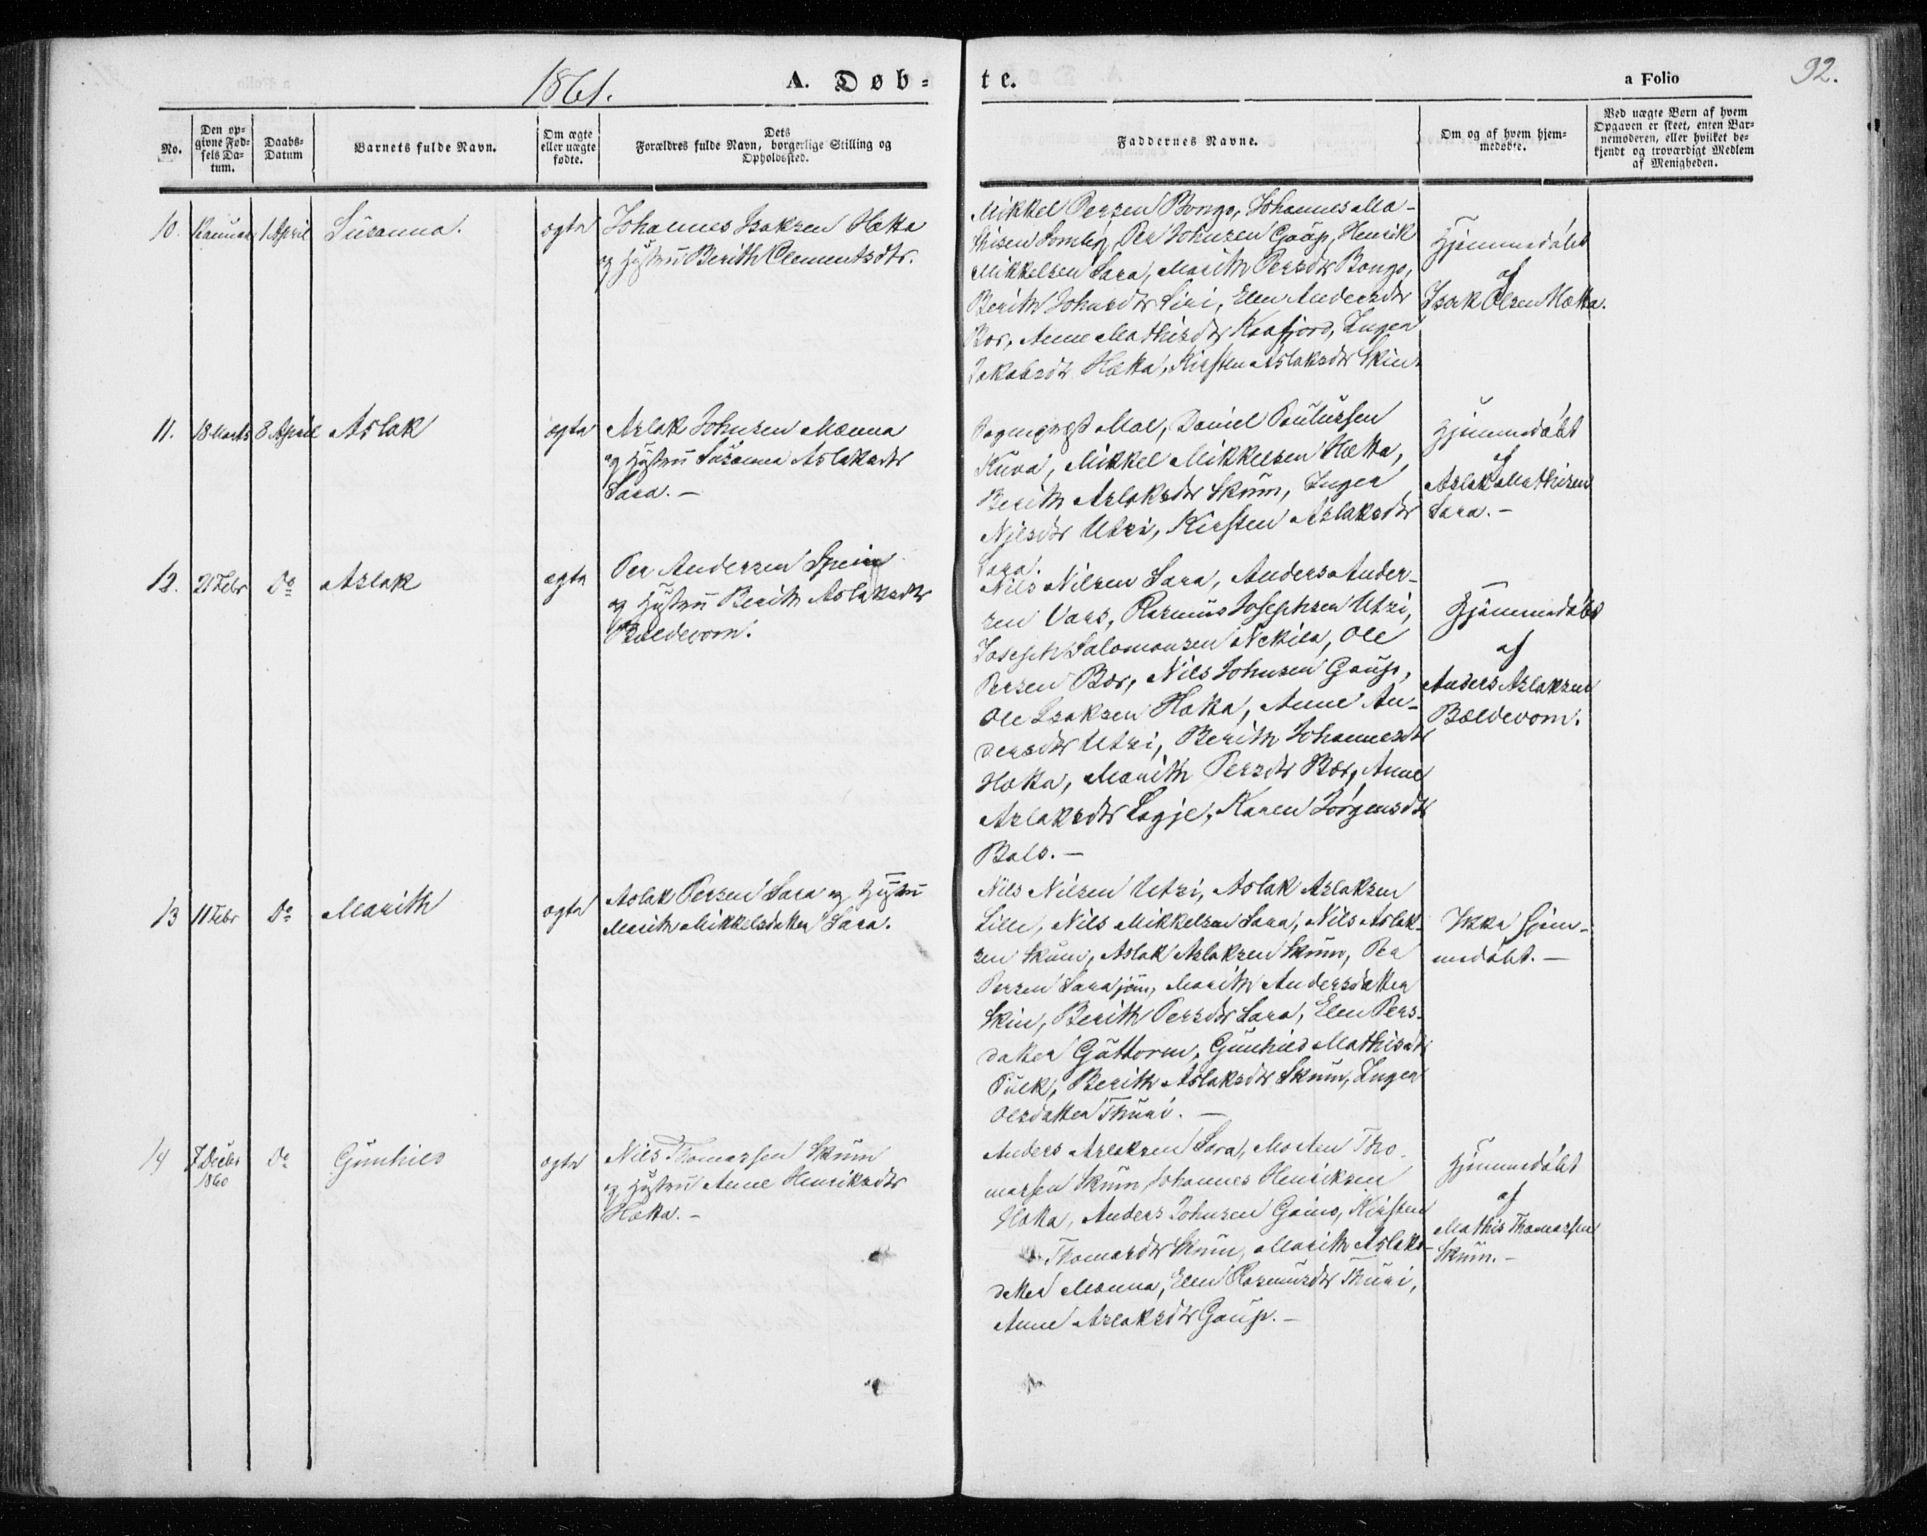 1861.
A. Døb-
te.
a Folio
92.
No.
Den op-
givne Fød-
sels Da-
tum.
Daabs-
Datum
Barnets fulde Navn.
Om ægte
eller uægte
fødte.
Dets
Forældres fulde Navn, borgerlige Stilling og
Opholdssted.
Faddernes Navne.
Om og af hvem hjem-
medøbte.
Ved uægte Børn af hvem
Opgaven er skeet, enten Bar-
nemoderen, eller hvilket be-
kjendt og troværdigt Medlem
af Menigheden.
10.
1 April
Susanna.
ægte
Johannes Isaksen Hætta
og Hustru Berith Clementsdtr.
Mikkel Persen Bongo, Johannes Ma-
thisen Somby, Per Johnsen Gaup, Henrik
Mikkelsen Sara, Marith Persdtr Bongo,
Berith Johnsdtr Siri, Elen Andersdtr
Bær, Anne Mathisdtr Kaafjord, Inger
Jakobsdtr Hætta, Kirsten Aslaksdtr Skin.
Hjemmedøbt
af
Isak Olsen Hætta.
11.
18 Marts
8 April
Aslak
ægte
Aslak Johnsen Mænna
og Hustru Susanna Aslaksdtr
Sara.-
Mae, Daniel Poulussen
Kuva, Mikkel Mikkelsen Hætta,
Berith Aslaksdtr Skum, Inger
Nilsdtr Utzi, Kirsten Aslaksdtr
Sara.
Hjemmedøbt
af
Aslak Mathisen
Sara.-
12.
21 Febr
Do
Aslak
ægte
Per Andersen
og Hustru Berith Aslaksdtr
Bældevom.
Nils Nilsen Sara, Anders Ander-
sen Vars, Rasmus Josephsen Utzi,
Joseph Salomonsen Nckila, Ole
Persen Bær, Nils Johnsen Gaup,
Ole Isaksen Hætta, Anne An-
dersdtr Utzi, Berith Johannesdtr
Hætta, Marith Persdtr Bær, Anne
Aslaksdtr Logje, Karen Jørgensdtr
Bals.-
Hjemmedøbt
af
Anders Aslaksen
Bældevom.
13
11 Febr
Do
Marith
ægte
Aslak Persen Sara og Hustru
Marith Mikkelsdatter Sara.
Nils Nilsen Utzi, Aslak Aslaksen
Lille, Nils Mikkelsen Sara, Nils Aslak-
sen Skum, Aslak Aslaksen Skum, Per
Persen Sara jun, Marith Andersdatter
Skin, Berith Persdtr Sara, Elen Pers-
datter Guttorm, Gunhild Mathisdtr
Pulk, Berith Aslaksdtr Skum, Inger
Olsdatter Thuri.-
Ikke hjem-
medøbt.-
14
7 Decbr
1860
Do
Gunhild
ægte
Nils Thomassen Skum
og Hustru Anne Henriksdtr
Hætta.-
Anders Aslaksen Sara, Morten Tho-
massen Skum, Johannes Henriksen
Hætta, Anders Johnsen Gaino, Kirsten
Thomasdtr Skum, Marith Aslaks-
datter Mænna, Elen Rasmusdtr Thuri,
Anne Aslaksdtr Gaup.-
Hjemmedøbt
af
Mathis Thomassen
Skum.-